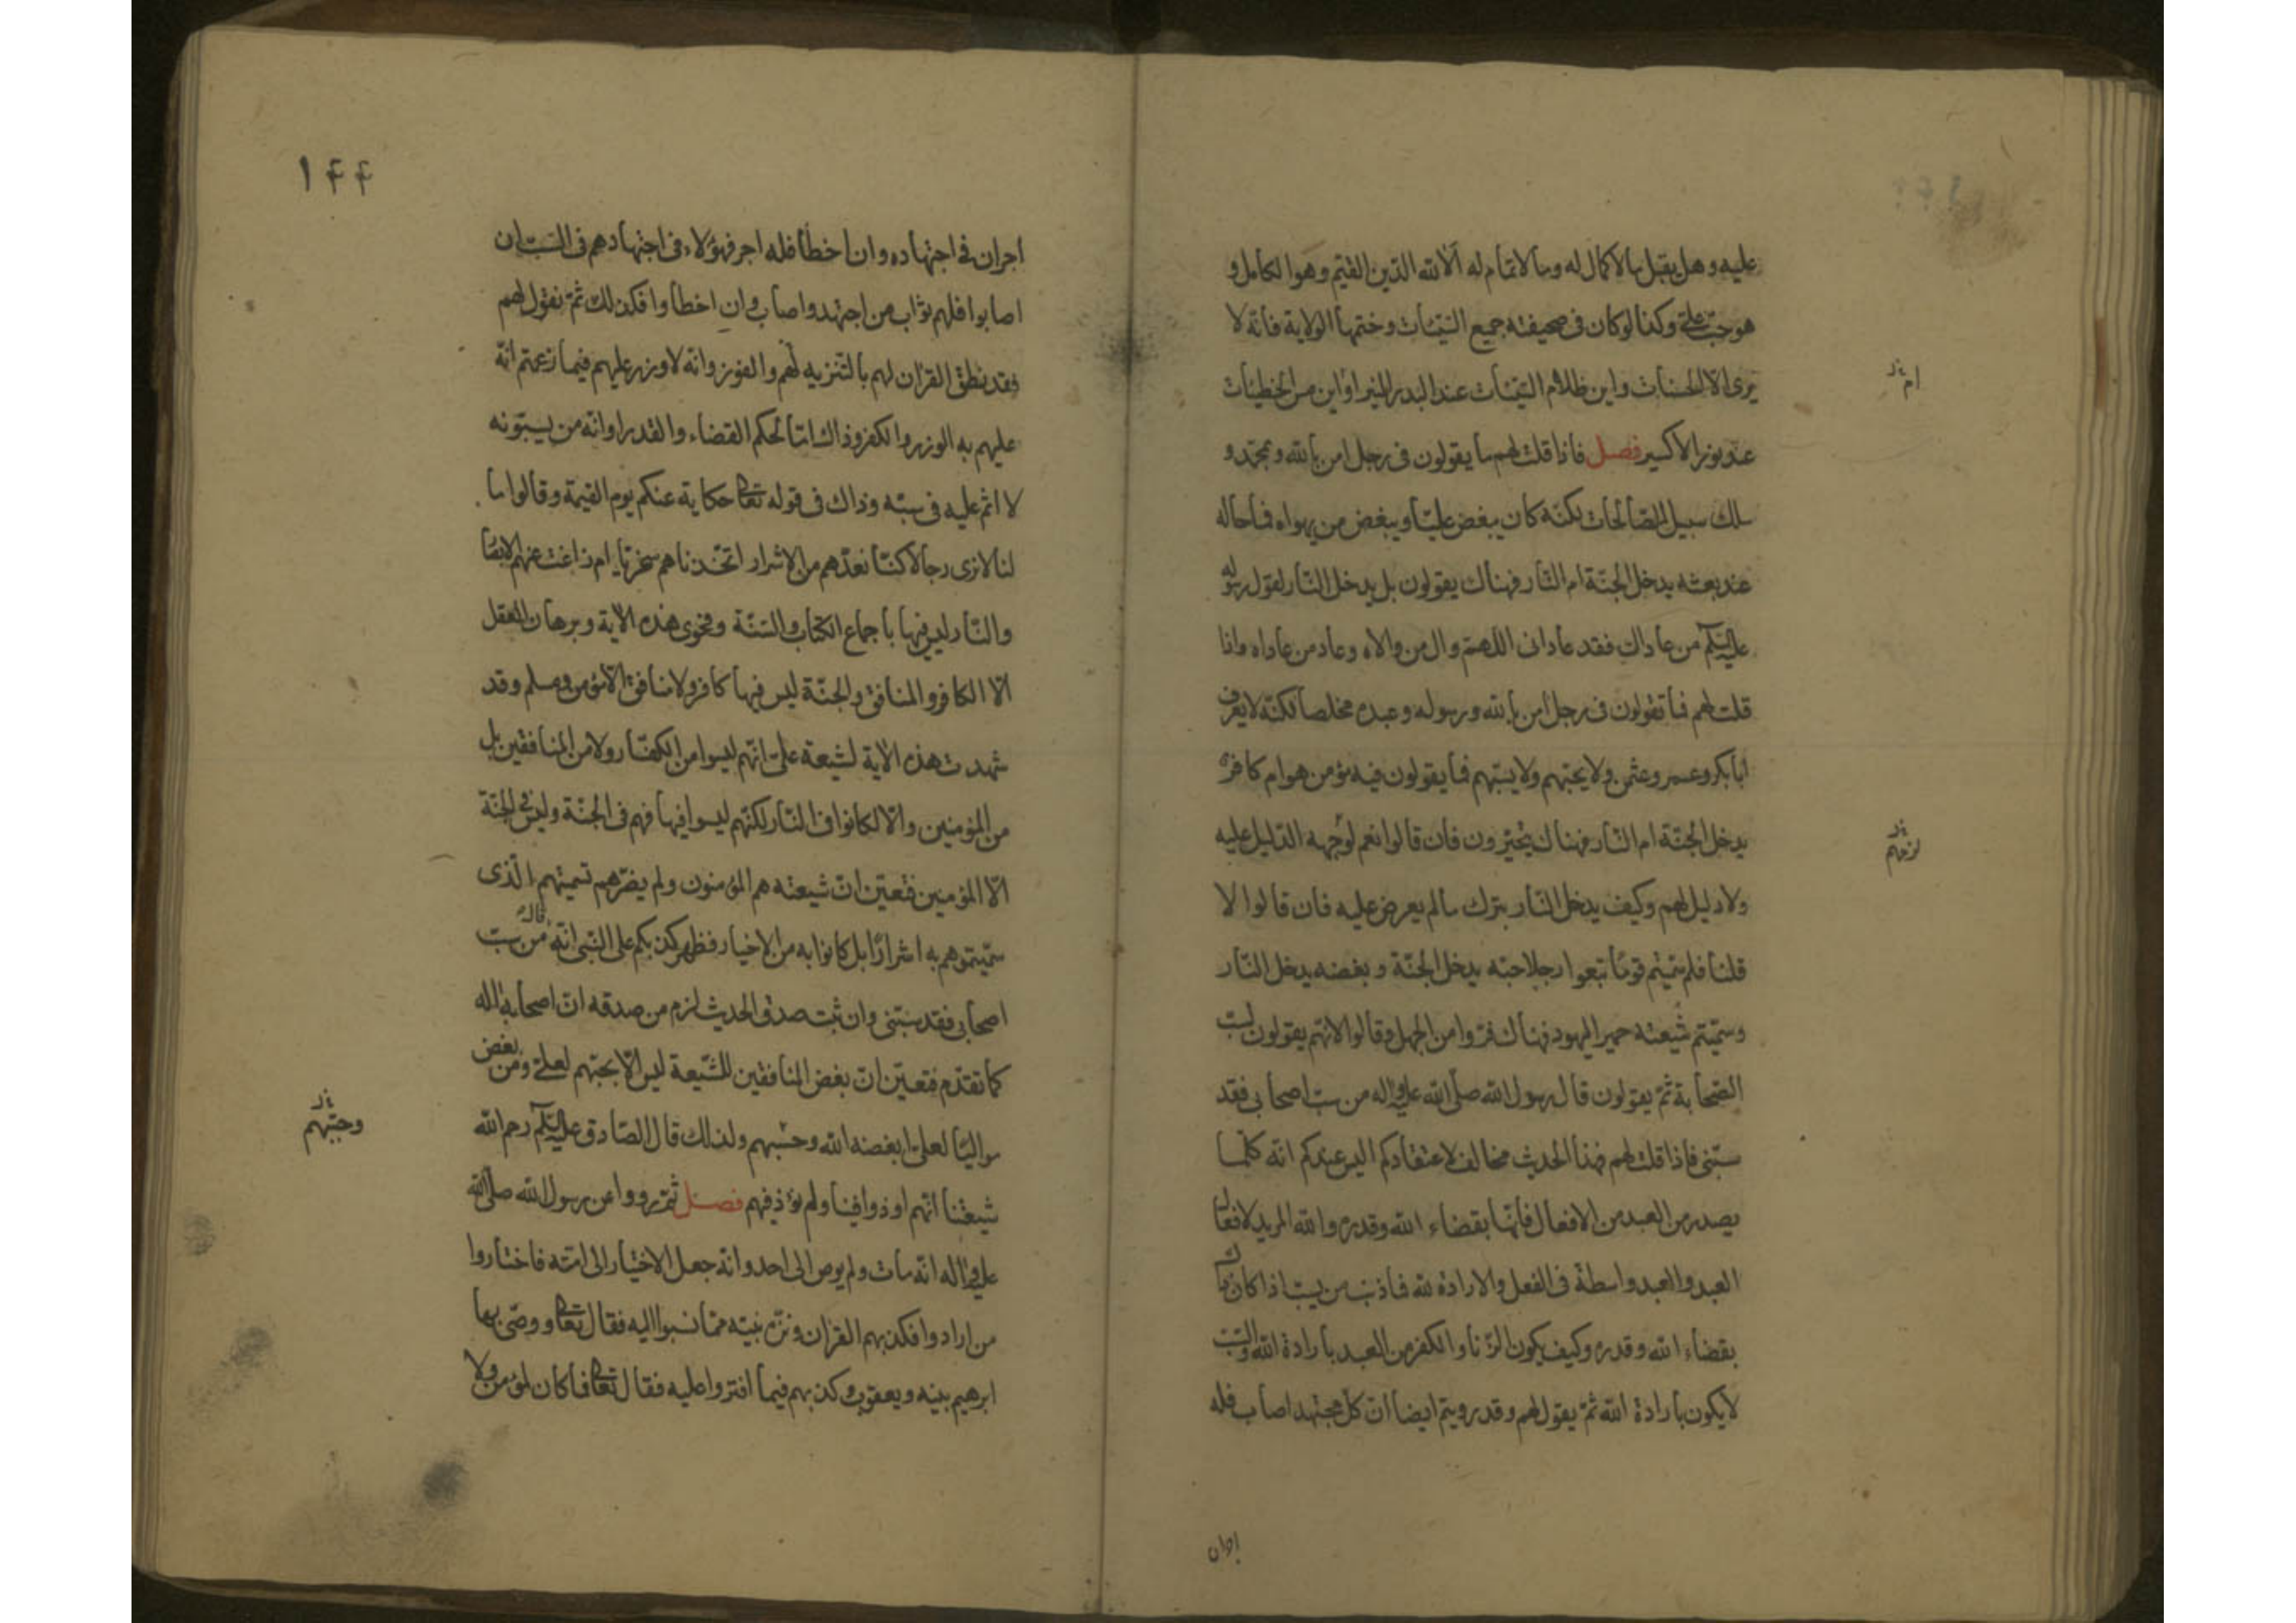 عليه وهل يقبل ما لا كمال له وما لا تمام له الا لله الدين القيم وهو الكامل و
هو حب علي وكذا لو كان في صحيفته جميع السيئات وختمها الولاية فانه لا
يرى الا الحسنات واين ظلام السيئات عند البدر المنير او اين من الخطيئات
عند بوزر الاكسير فصل فاذا قلت لهم ما يقولون في رجل امن بالله وبمحمد و
سلك سبيل الصالحات لكنه كان يبغض عليا ويبغض من يهواه فما حاله
عند بعثه يدخل الجنة ام النار فهناك يقولون بل يدخل النار لقول رسوله
عليه السلام من عاداك فقد عاداني اللهم وال من والاه وعاد من عاداه واذا
قلت لهم فما تقولون في رجل امن بالله ورسوله وعبده مخلصا لكنه لا يعرف
ابا بكر وعمر وعثمن ولا يحبهم ولا يسبهم فما يقولون فيه مؤمن هو ام كافر
يدخل الجنة ام النار فهناك يتحيرون فان قالوا نعم لوجهه الدليل عليه
ولا دليل لهم وكيف يدخل النار بترك ما لم يعرض عليه فان قالوا لا
قلنا فلم سميتم قوما تبعوا رجلا حبه يدخل الجنة وبغضه يدخل النار
وسميتم شيعته حمير اليهود فهناك فروا من الجهل وقالوا لانهم يقولون بسب
الصحابة ثم يقولون قال رسول الله صلى الله عليه واله من سب اصحابي فقد
سبني فاذا قلت لهم هذا الحديث مخالف لاعتقادكم اليس عندكم انه كلما
يصدر من العبد من الافعال فانها بقضاء الله وقدره والله المريد لافعال
العبد والعبد واسطة في الفعل والارادة لله فما ذنب من يسب اذا كان ذاك
بقضاء الله وقدره وكيف يكون الزنا والكفر من العبد بارادة الله والسب
لا يكون بارادة الله ثم يقول لهم وقد رويتم ايضا ان كل مجتهد اصاب فله
ام
لزمهم
اجران في اجتهاده وان اخطأ فله اجر فهؤلاء في اجتهادهم في السب ان
اصابوا فلهم ثواب من اجتهد واصاب وان اخطأوا فكذلك ثم نقول لهم
فقد نطق القران لهم بالتنزيه لهم والفوز وانه لا وزر عليهم فيما زعمتم انه
عليهم به الوزر والكفر وذاك اما لحكم القضاء والقدر او انه من يسبونه
لا اثم عليه في سبه وذاك في قوله تعالى حكاية عنكم يوم القيمة وقالوا ما
لنا لا نرى رجالا كنا نعدهم من الاشرار اتخذناهم سخريا ام زاغت عنهم الابصا
والنار ليس فيها باجماع الكتاب والسنة وفحوى هذه الاية وبرهان العقل
الا الكافر والمنافق والجنة ليس فيها كافر ولا منافق الا مؤمن ومسلم وقد
شهدت هذه الاية لشيعة علي انهم ليسوا من الكفار ولا من المنافقين بل
من المؤمنين والا لكانوا في النار لكنهم ليسوا فيها فهم في الجنة وليس في الجنة
الا المؤمنين فتعين ان شيعته هم المؤمنون ولم يضرهم تسميتهم الذي
سميتموهم به اشرارا بل كانوا به من الاخيار فظهر كذبكم على النبي انه قال من سب
اصحابي فقد سبني وان ثبت صدق الحديث لزم من صدقه ان اصحابه اله
كما تقدم فتعين ان بغض المنافقين للشيعة ليس الا بحبهم لعلي ومن بغض
مواليا لعلي ابغضه الله وحسبهم ولذلك قال الصادق عليه السلام رحم الله
شيعتنا انهم اوذوا فينا ولم نؤذ فيهم فصل ثم رووا عن رسول الله صلى الله
عليه واله انه مات ولم يوص الى احد وانه جعل الاختيار الى امته فاختاروا
من ارادوا فكذبهم القران ونزه نبيه مما نسبوا اليه فقال تعالى ووصى بها
ابرهيم بنيه ويعقوب وكذبهم فيما افتروا عليه فقال تعالى فما كان لمؤمن ولا
وحبهم
اجران
۱۴۴